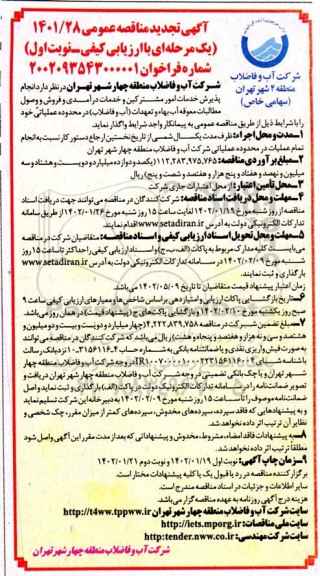 آگهی تجدید مناقصه عمومی ۱۴۰۱/۲۸
(یک مرحله‌ای با ارزیابی کیفی–نوبت اول)
شماره فراخوان ۲۰۰۲۰۹۳۵۴۳۰۰۰۰۰۱
شرکت آب و فاضلاب
منطقه ۴ شهر تهران
(سهامی خاص)
شرکت آب و فاضلاب منطقه چهار شهر تهران در نظر دارد انجام
پذیرش خدمات امور مشترکین و خدمات درآمدی و فروش و وصول
مطالبات معوقه آب بهاء و تعهدات (آب و فاضلاب) در محدوده عملیاتی خود
را با شرایط ذیل از طریق مناقصه عمومی به پیمانکار واجد شرایط واگذار نماید.
۱–مدت و محل اجراء: ظرف مدت یکسال شمسی از تاریخ نخستین ارجاع دستور کار نسبت به انجام
تمام عملیات در محدوده عملیاتی شرکت آب و فاضلاب منطقه چهار شهر تهران
۲–مبلغ برآوردی مناقصه: ۱۱۲,۲۸۳,۹۷۵,۷۶۵ (یکصد و دوازده میلیارد و دویست و هشتاد و سه
میلیون و نهصد و هفتاد و پنج هزار و هفتصد و شصت و پنج) ریال
۳–محل تأمین اعتبار: از محل اعتبارات جاری شرکت
۴–مهلت و محل دریافت اسناد مناقصه: شرکت‌کنندگان در مناقصه می‌توانند جهت دریافت اسناد
مناقصه از روز شنبه مورخ ۱۴۰۲/۰۱/۱۹ لغایت ساعت ۱۵ روز شنبه مورخ ۱۴۰۲/۰۱/۲۶ از طریق سامانه
تدارکات الکترونیکی دولت به آدرس www.setadiran.ir اقدام نمایند.
۵–مهلت و محل تحویل اسناد ارزیابی کیفی و اسناد مناقصه: متقاضیان شرکت در مناقصه
می‌بایست کلیه مدارک مربوط به پاکات (الف، ب، ج) و اسناد ارزیابی کیفی را حداکثر تا ساعت ۱۵ روز
شنبه مورخ ۱۴۰۲/۰۲/۰۹ در سامانه تدارکات الکترونیکی دولت به آدرس www.setadiran.ir
بارگذاری و ثبت نمایند.
زمان اعتبار پیشنهاد قیمت متقاضیان تا تاریخ ۱۴۰۲/۰۵/۰۹ می‌باشد.
۶–تاریخ بازگشایی پاکات ارزیابی و امتیازدهی براساس شاخص‌ها و معیارهای ارزیابی کیفی ساعت ۹
صبح روز یکشنبه مورخ ۱۴۰۲/۰۲/۱۰ و بازگشایی پاکت‌های ج (پیشنهاد قیمت)، در همان روز می‌باشد.
۷–مبلغ تضمین شرکت در مناقصه ۴,۲۲۲,۸۳۹,۷۵۸ (چهار میلیارد و دویست و بیست و دو میلیون و
هشتصد و سی و نه هزار و هفتصد و پنجاه و هشت) ریال می‌باشد که شرکت‌کنندگان در مناقصه می‌توانند
به صورت فیش واریزی نقدی و یا ضمانتنامه بانکی به شماره حساب
در وجه شرکت آب و فاضلاب منطقه چهار
شهر تهران و یا چک بانکی تضمینی در وجه شرکت آب و فاضلاب منطقه چهار شهر تهران دریافت و
تصویر ضمانتنامه را در سامانه تدارکات الکترونیک دولت در پاکت (الف) بارگذاری و ثبت نماید و اصل
ضمانتنامه موصوف را تا ساعت ۱۵ روز شنبه مورخ ۱۴۰۲/۰۲/۰۹ به دبیرخانه این شرکت تسلیم نماید
و به پیشنهادهایی که فاقد سپرده، سپرده‌های مخدوش، سپرده‌های کمتر از میزان مقرر، چک شخصی و
نظایر آن ترتیب اثر داده نخواهد شد.
۸–به پیشنهادات فاقد امضاء، مشروط، مخدوش و پیشنهاداتی که بعد از مدت مقرر این آگهی واصل شود
مطلقاً ترتیب اثر داده نخواهد شد.
۹–زمان چاپ آگهی: نوبت اول ۱۴۰۲/۰۱/۱۹ و نوبت دوم ۱۴۰۲/۰۱/۲۱
برگزار کننده مناقصه در رد یا قبول یک یا کلیه پیشنهادات مختار است.
سایر اطلاعات و جزئیات در اسناد مناقصه مندرج است.
هزینه درج آگهی روزنامه به عهده مناقصه گزار می‌باشد.
سایت شرکت آب و فاضلاب منطقه چهار شهر تهران http://t4ww.tppww.ir
سایت ملی مناقصات: http://iets.mporg.ir
سایت شرکت مهندسی: http:tender.nww.co.ir
شرکت آب و فاضلاب منطقه چهار شهر تهران